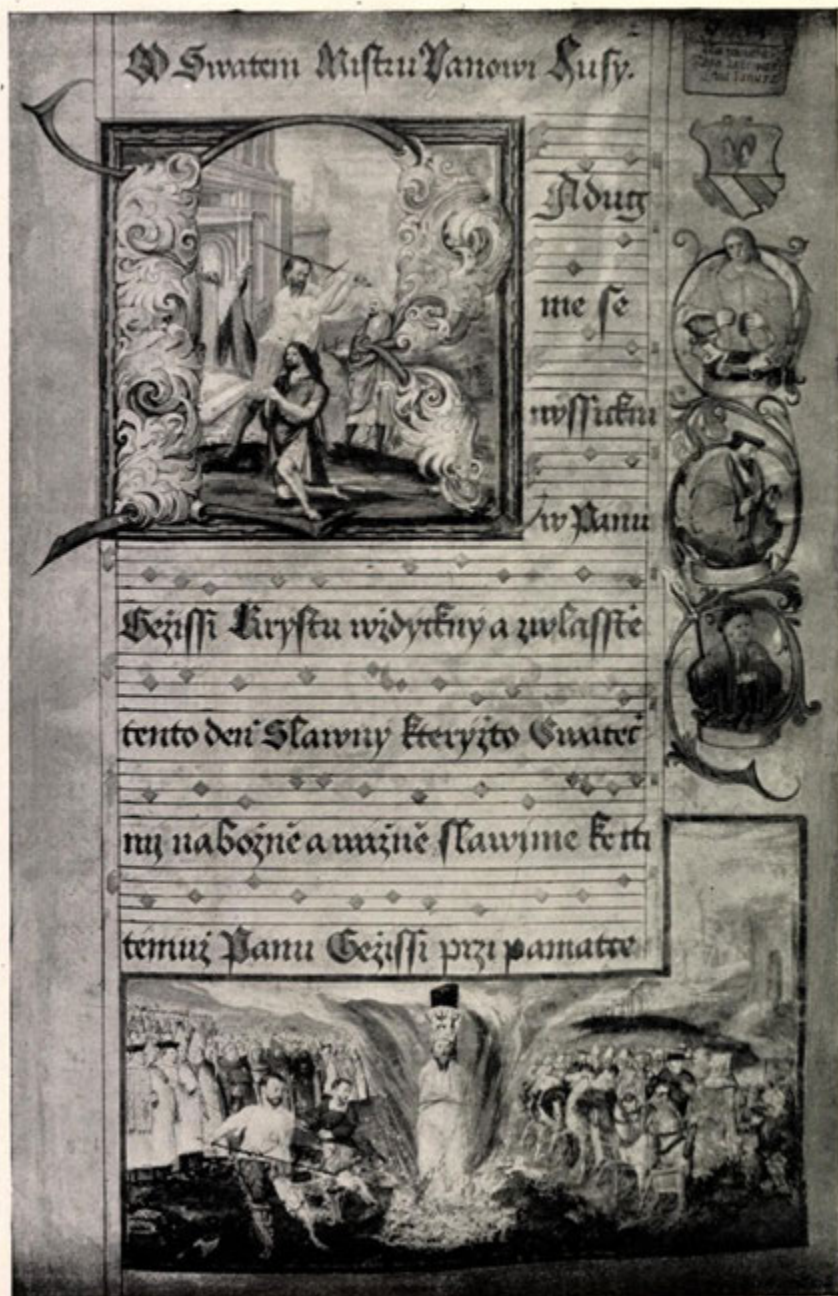 O Swatem Mistru Janowi Husy.
Adug
me se
wssickni
w Panu
Gežissi Krystu wždyckny a zwlasstě
tento deň Slawny kteryžto Swateč
ny nabožně a wažně slawime ke cti
temuž Panu Gežissi przi pamatce